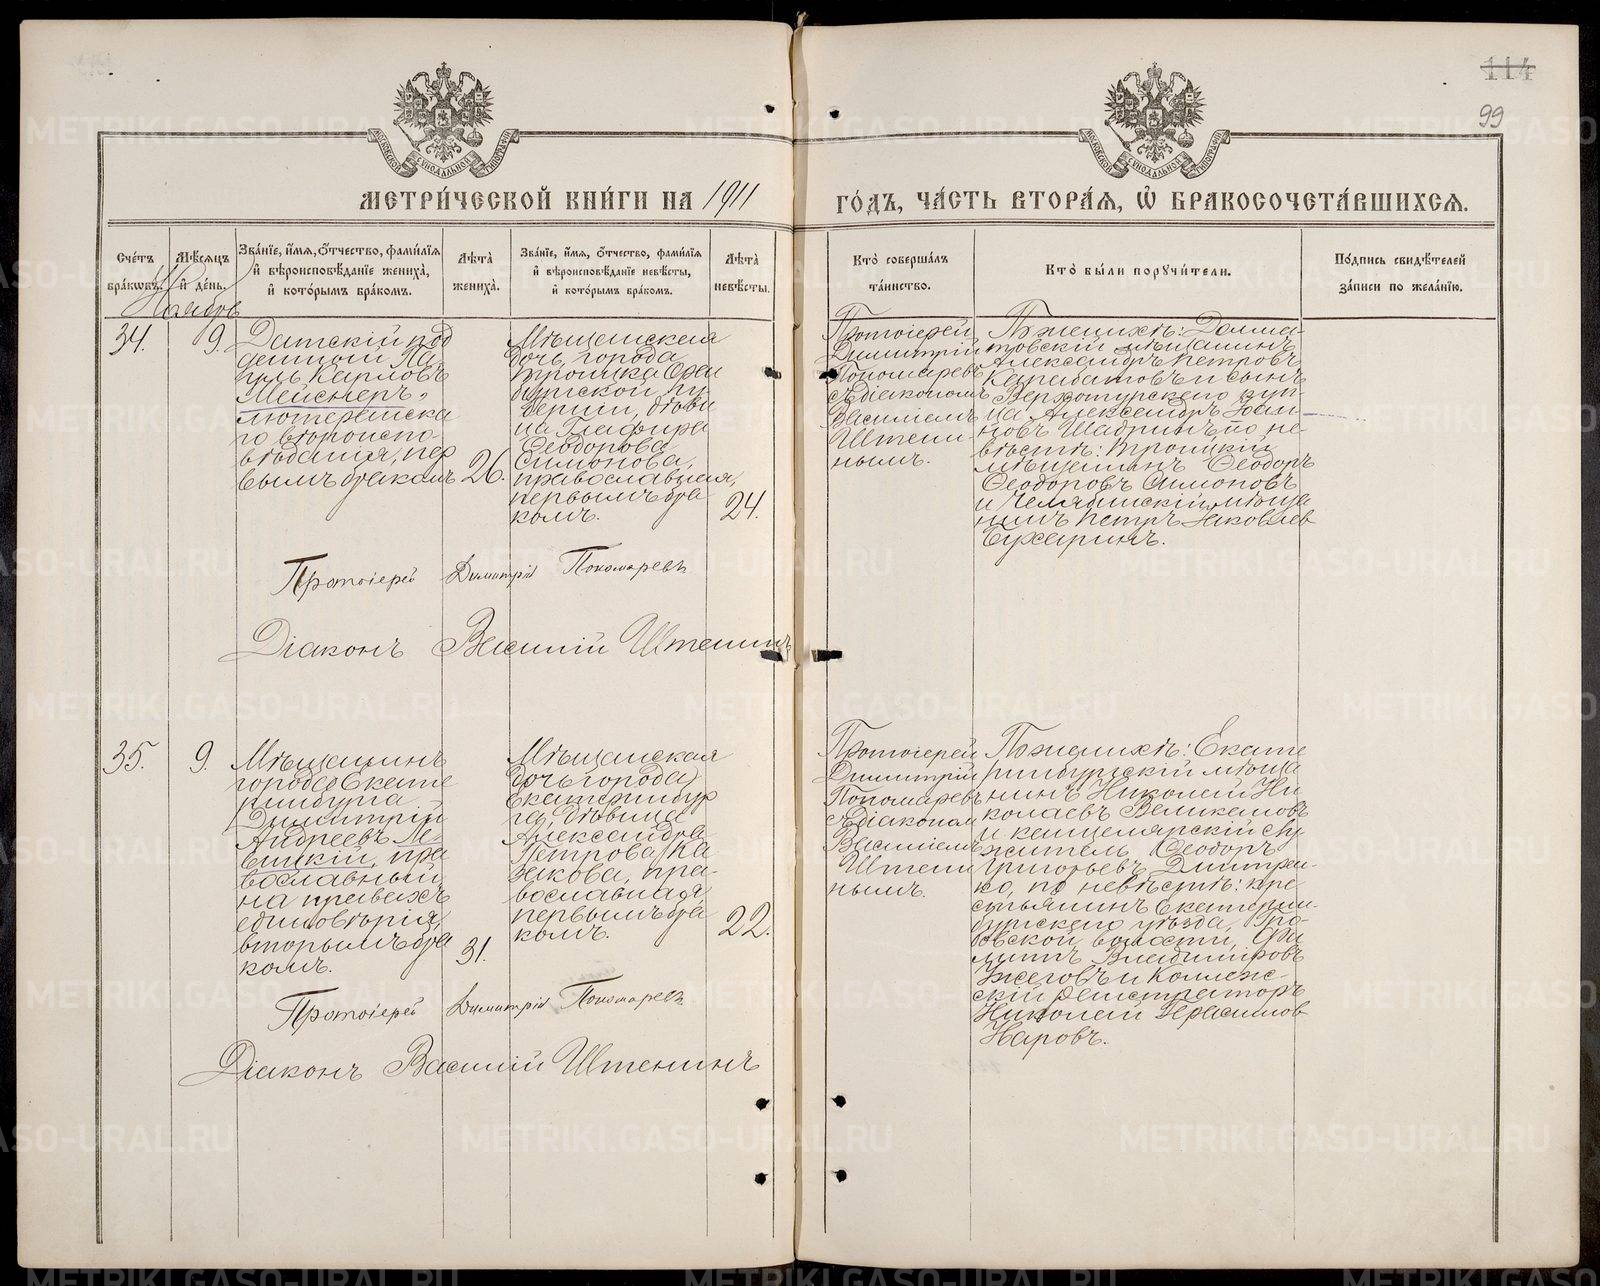 114
99
МЕТРИ́ЧЕСКОЙ КНИ́ГИ НА 1911
ГО́ДЪ, ЧА́СТЬ ВТОРА́Я, Ѡ БРАКОСОЧЕТА́ВШИХСЯ.
Сче́тъ бра́ковъ.
Мѣ́сяцъ и де́нь.
Зва́нїе, и́мя, ѻ́тчество, фами́лїя и҆ вѣроисповѣ́данїе жениха̀, и҆ кото́рымъ бра́комъ.
Лѣ́та жениха̀.
Зва́нїе, и́мя, ѻ́тчество, фами́лїя и҆ вѣроисповѣ́данїе невѣ́сты, и҆ кото́рымъ бра́комъ.
Лѣ́та невѣ́сты.
Кто̀ соверша́лъ та́инство.
Кто̀ бы́ли порꙋчи́тели.
По́дпись свидѣ́телей за́писи по жела́нїю.
Ноябрь
34.
9.
Датскій под
данный Па
уль Карловъ
Мейснеръ,
лютеранска
го вѣроиспо-
вѣданія, пер
вымъ бракомъ
26.
Мѣщанская
дочь города
Троицка Орен
бургской гу-
берніи, дѣви
ца Глафира
Ѳеодорова
Симонова,
православная,
первымъ бра
комъ.
24.
Протоіерей
Димитрій
Пономаревъ
съ діакономъ
Василіемъ
Штени-
нымъ.
По женихѣ: Долма-
товскій мѣщанинъ
Александръ Петровъ
и сынъ
Верхотурскаго куп-
ца Александръ Іоан-
новъ Шадринъ, по не-
вѣстѣ: Троицкій
мѣщанинъ Ѳеодоръ
Ѳеодоровъ Симоновъ
и Челябинскій мѣща
нинъ Петръ Яковлев
Бухаринъ.
Протоіерей Димитрій Пономаревъ
Діаконъ Василій Штенинъ
35.
9.
Мѣщанинъ
города Екате
ринбурга
Димитрій
Андреевъ Ле-
вицкій, пра
вославный
на правахъ
единовѣрія,
вторымъ бра
комъ.
31.
Мѣщанская
дочь города
Екатеринбур
га, дѣвица
Александра
Петрова Ка
закова, пра-
вославная,
первымъ бра
комъ.
22.
Протоіерей
Димитрій
Пономаревъ
съ діакономъ
Василіемъ
Штени
нымъ.
По женихѣ: Екате
ринбургскій мѣща
нинъ Николай Ни
колаевъ Великановъ
и канцелярскій слу
житель Ѳеодоръ
Григорьевъ Дмитрен-
ко, по невѣстѣ: кре
стьянинъ Екатерин-
бургскаго уѣзда, Гро-
бовской волости, Фи
липпъ Владиміровъ
Ужеговъ и Коллеж-
скій регистраторъ
Николай Герасимов
Наровъ.
Протоіерей Димитрій Пономаревъ
Діаконъ Василій Штенинъ
METRIKI.GASO-URAL.RU